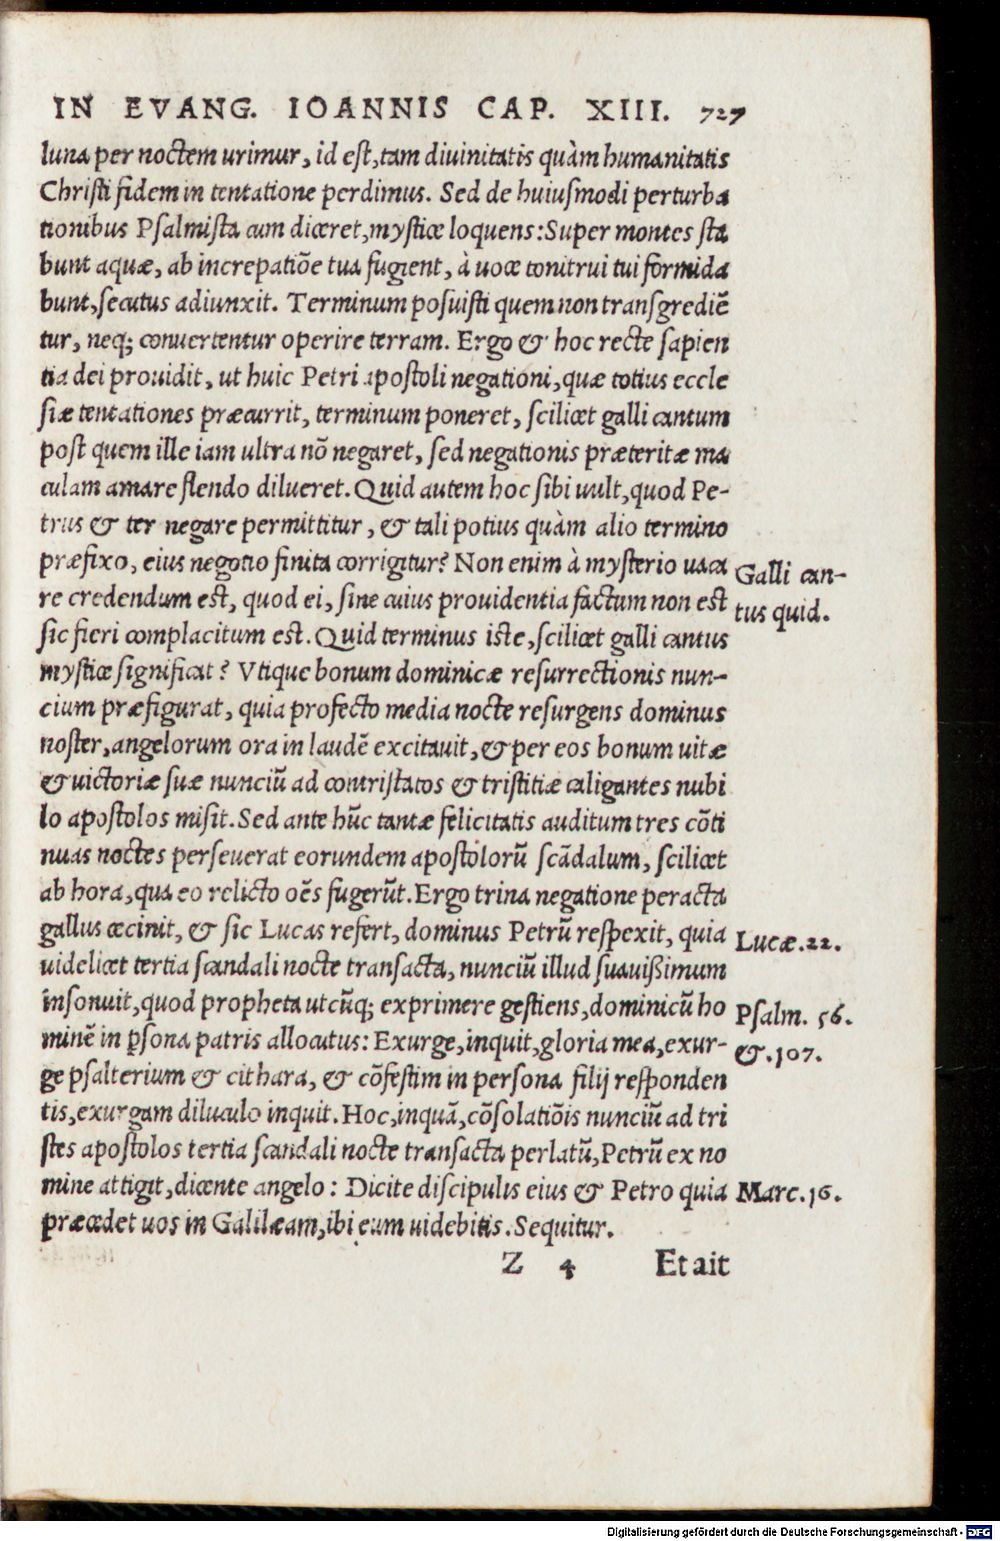 IN EVANG. IOANNIS CAP. XIII. 727
luna per noctem urimur, id est, tam diuinitatis quàm humanitatis
Christi fidem in tentatione perdimus. Sed de huiusmodi perturba
tionibus Psalmista cum diceret, mystice loquens: Super montes sta
bunt aquæ, ab increpatiõe tua fugient, à uoce tonitrui tui formida
bunt, secutus adiunxit. Terminum posuisti quem non transgrediẽ
tur, neq; conuertentur operire terram. Ergo & hoc recte sapien
tia dei prouidit, ut huic Petri apostoli negationi, quæ totius eccle
siæ tentationes præcurrit, terminum poneret, scilicet galli cantum
post quem ille iam ultra nõ negaret, sed negationis præteritæ ma
culam amare flendo dilueret. Quid autem hoc sibi uult, quod Pe-
trus & ter negare permittitur, & tali potius quàm alio termino
præfixo, eius negotio finita corrigitur? Non enim à mysterio uaca
Galli can-
re credendum est, quod ei, sine cuius prouidentia factum non est
tus quid.
sic fieri complacitum est. Quid terminus iste, scilicet galli cantus
mystice significat? Vtique bonum dominicæ resurrectionis nun-
cium præfigurat, quia profecto media nocte resurgens dominus
noster, angelorum ora in laudẽ excitauit, & per eos bonum uitæ
& uictoriæ suæ nunciũ ad contristatos & tristitiæ caligantes nubi
lo apostolos misit. Sed ante hũc tantæ felicitatis auditum tres cõti
nuas noctes perseuerat eorundem apostolorũ scãdalum, scilicet
ab hora, qua eo relicto oẽs fugerũt. Ergo trina negatione peracta
gallus cecinit, & sic Lucas refert, dominus Petrũ respexit, quia
Lucæ. 22.
uidelicet tertia scandali nocte transacta, nunciũ illud suauißimum
insonuit, quod propheta utcũq; exprimere gestiens, dominicũ ho
Psalm. 56.
minẽ in p̱sona patris allocutus: Exurge, inquit, gloria mea, exur-
&. 107.
ge psalterium & cithara, & cõfestim in persona filij responden
tis, exurgam diluculo inquit. Hoc, inquã, cõsolatiõis nunciũ ad tri
stes apostolos tertia scandali nocte transacta perlatũ, Petrũ ex no
mine attigit, dicente angelo: Dicite discipulis eius & Petro quia
Marc. 16.
præcedet uos in Galilæam, ibi eum uidebitis. Sequitur.
Z 4 Et ait
Digitalisierung gefördert durch die Deutsche Forschungsgemeinschaft - DFG